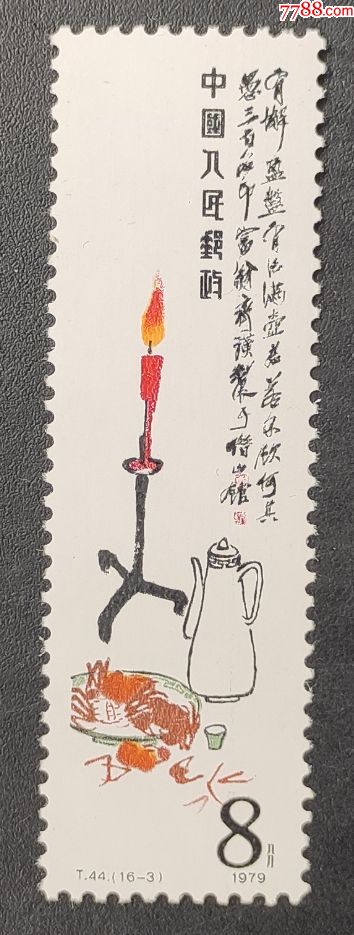 7788.com
中國人民郵政
有蟹盈盤有酒滿壺君若不飲何其
愚三百石印富翁齊璜製于借山館
8
T.44.(16-3)
1979